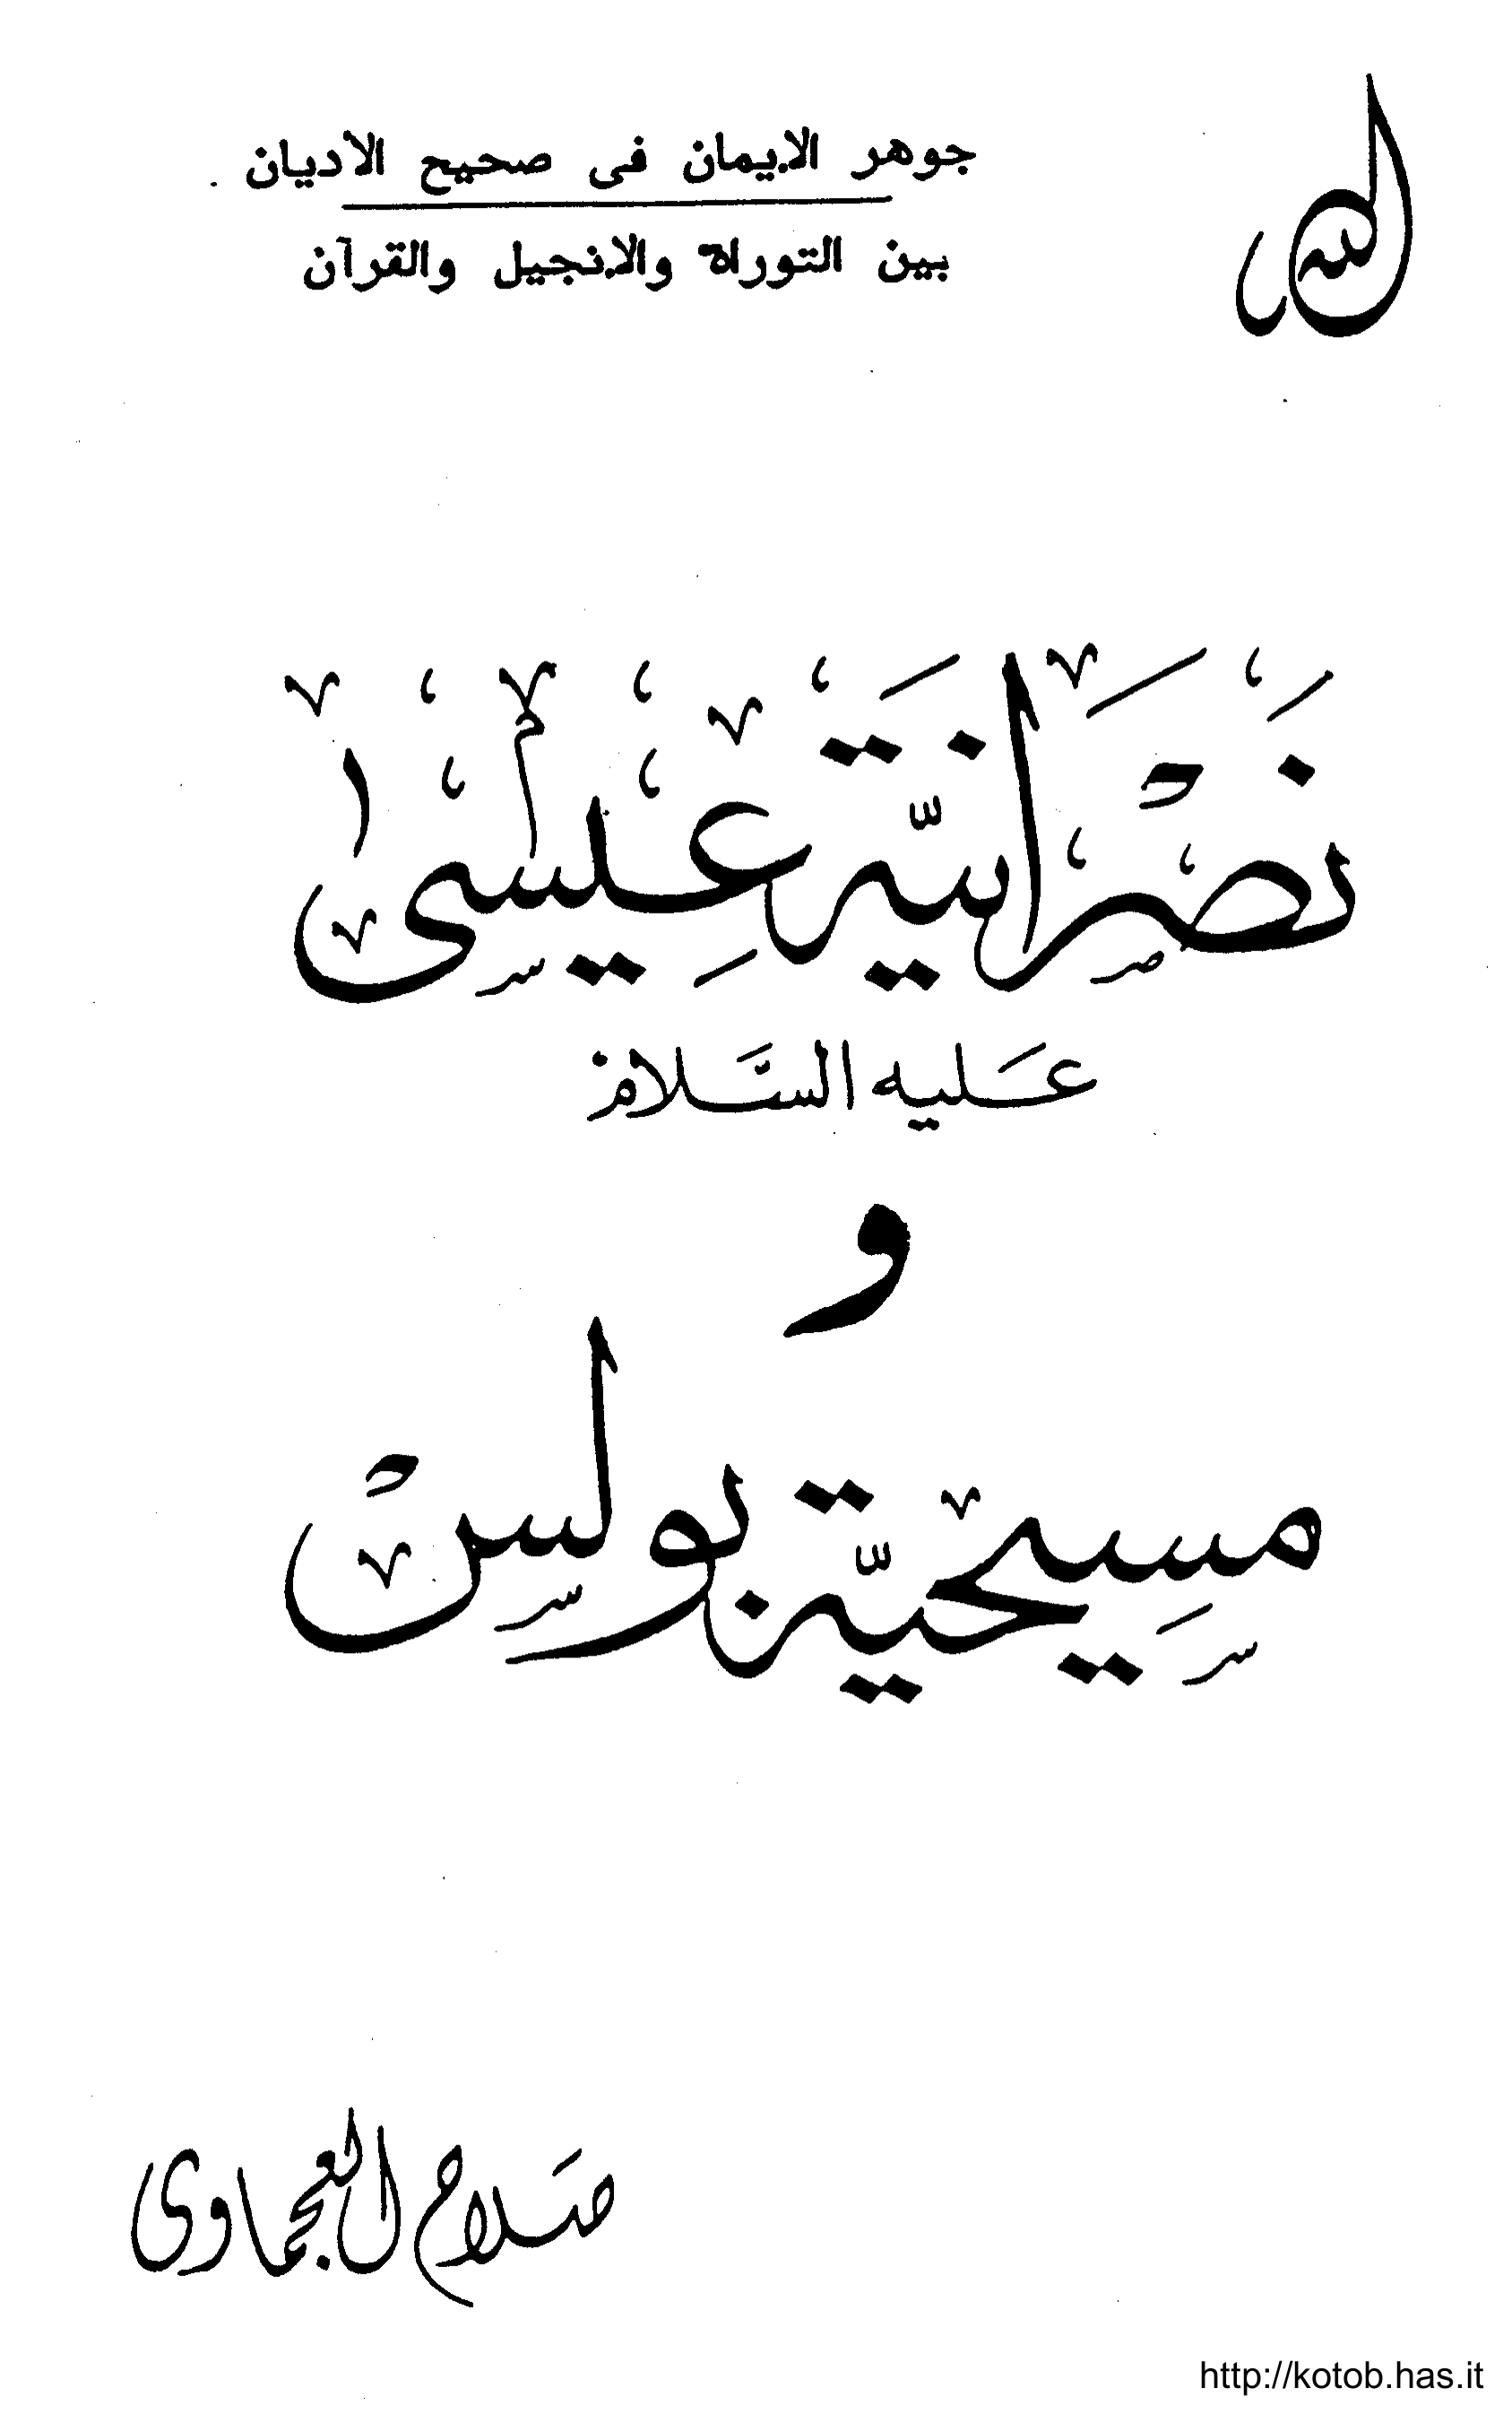 الله
جوهر الإيمان فى صحيح الأديان
بين التوراة والإنجيل والقرآن
نَصْرَانيَّة عِيسى
عَليه السَّلام
و
مسِيحيَّة بولس
صَلاح العجماوى
http://kotob.has.it